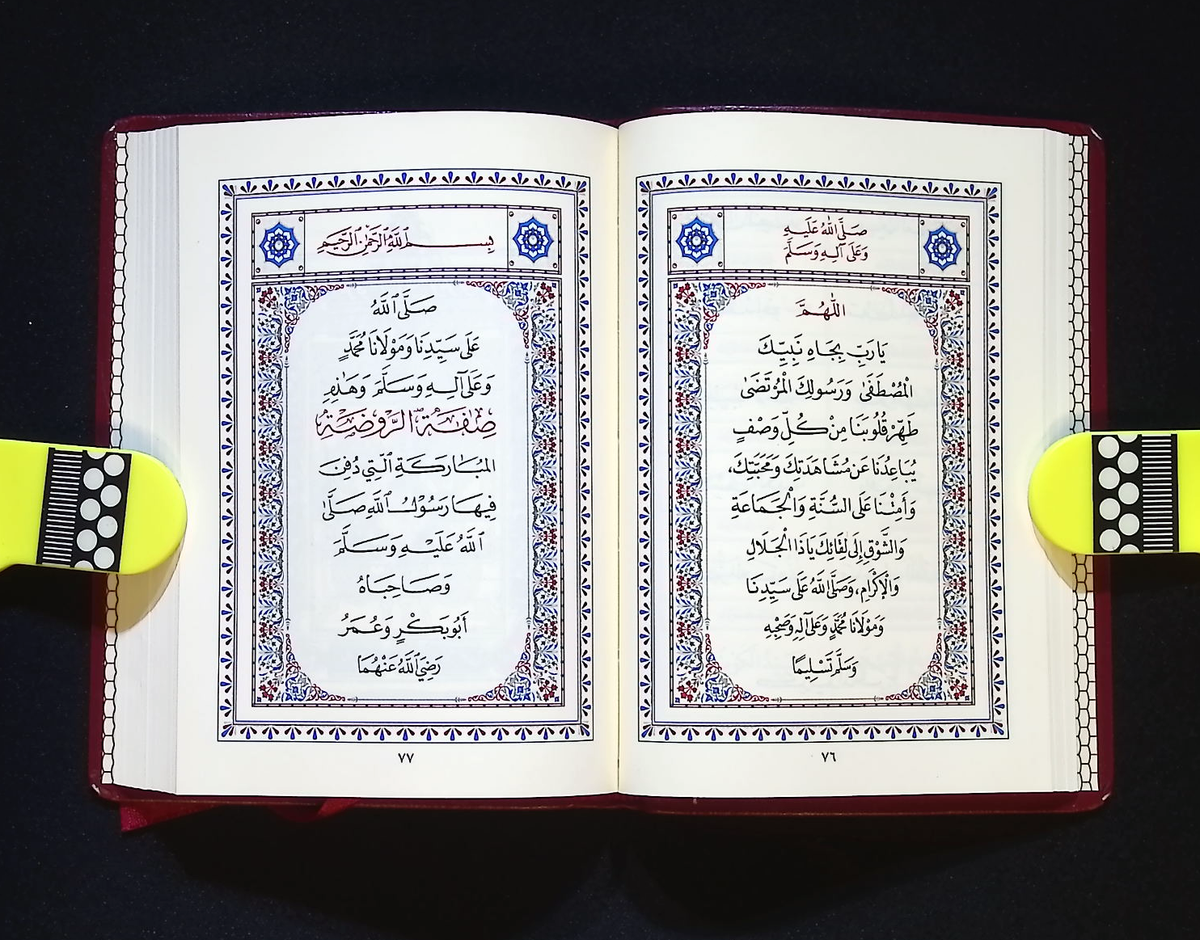 صَلَّى اللهُ عَلَيْهِ
وَعَلَى آلِهِ وَسَلَّمَ
اللَّهُمَّ
يَا رَبِّ بِجَاهِ نَبِيِّكَ
الْمُصْطَفَى وَرَسُولِكَ الْمُرْتَضَى
طَهِّرْ قُلُوبَنَا مِنْ كُلِّ وَصْفٍ
يُبَاعِدُنَا عَنْ مُشَاهَدَتِكَ وَمَحَبَّتِكَ،
وَأَمِتْنَا عَلَى السُّنَّةِ وَالْجَمَاعَةِ
وَالشَّوْقِ إِلَى لِقَائِكَ يَا ذَا الْجَلَالِ
وَالْإِكْرَامِ، وَصَلَّى اللهُ عَلَى سَيِّدِنَا
وَمَوْلَانَا مُحَمَّدٍ وَعَلَى آلِهِ وَصَحْبِهِ
وَسَلَّمَ تَسْلِيمًا
٧٦
بِسْمِ ٱللَّهِ ٱلرَّحْمَٰنِ ٱلرَّحِيمِ
صَلَّى ٱللَّهُ
عَلَى سَيِّدِنَا وَمَوْلَانَا مُحَمَّدٍ
وَعَلَى آلِهِ وَسَلَّمَ وَهَذِهِ
صِفَةُ الرَّوْضَةِ
المُبَارَكَةِ الَّتِي دُفِنَ
فِيهَا رَسُولُ اللَّهِ صَلَّى
اللَّهُ عَلَيْهِ وَسَلَّمَ
وَصَاحِبَاهُ
أَبُو بَكْرٍ وَعُمَرُ
رَضِيَ ٱللَّهُ عَنْهُمَا
٧٧